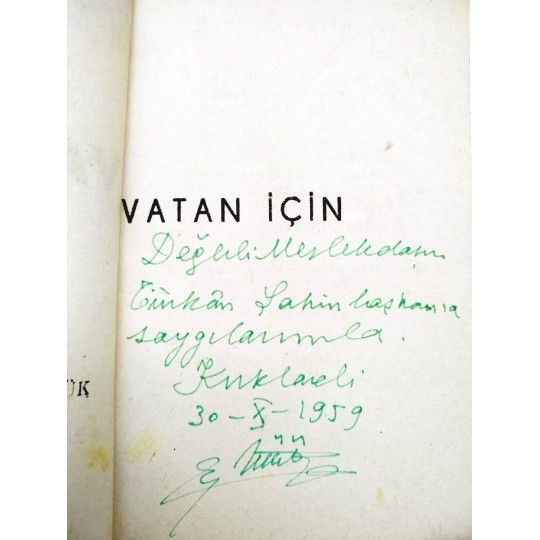 VATAN İÇİN
Değerli Meslekdaşım
Türkân Şahin başkanıa
saygılarımla.
Kırklareli
30-X-1959
ÜK